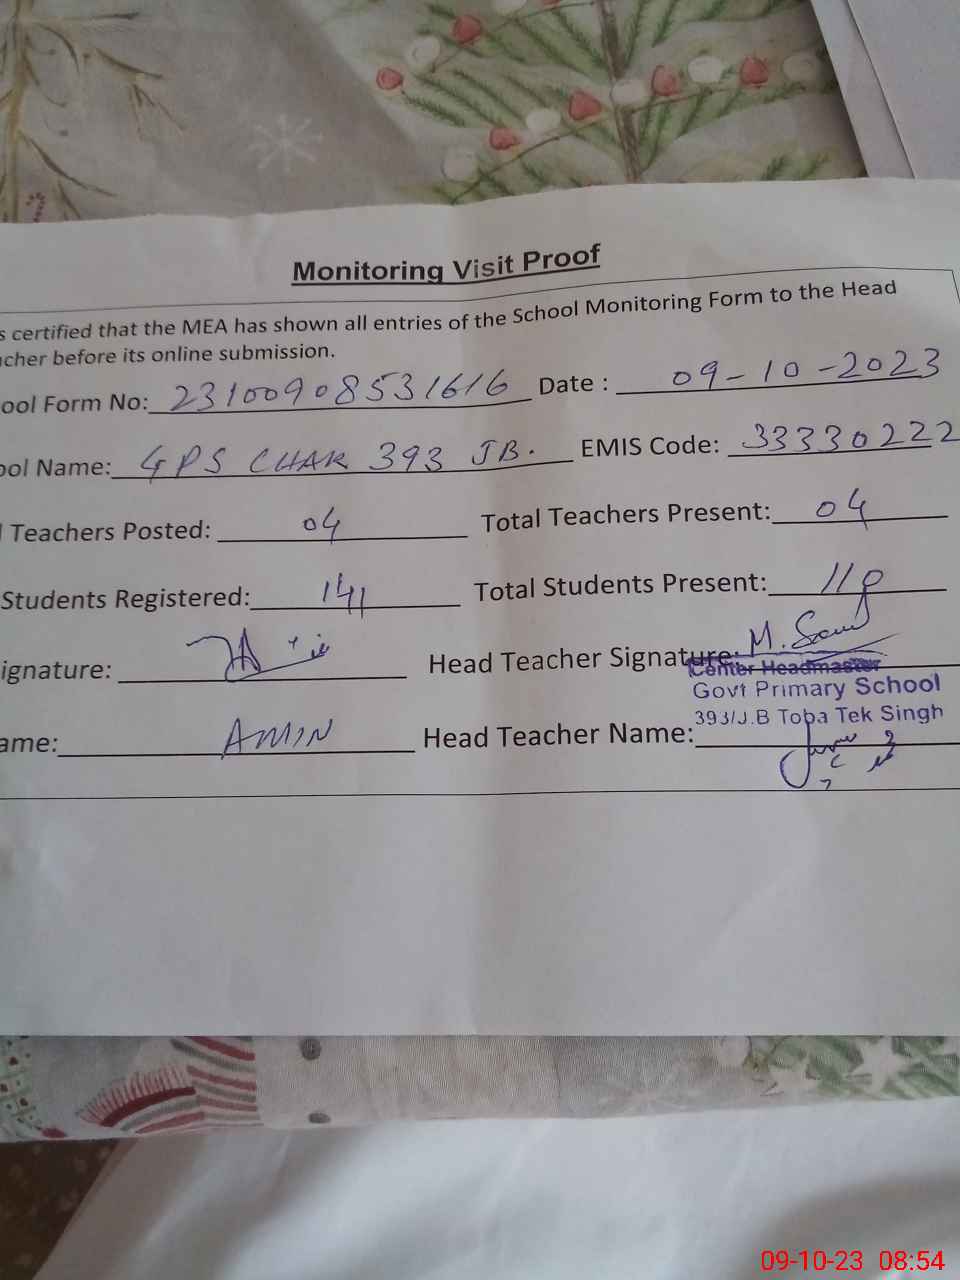 Monitoring Visit Proof
s certified that the MEA has shown all entries of the School Monitoring Form to the Head
cher before its online submission.
ool Form No: 23100908531616 Date : 09-10-2023
ool Name: GPS CHAK 393 JB. EMIS Code: 33330222
l Teachers Posted: 04 Total Teachers Present: 04
Students Registered: 141 Total Students Present: 110
ignature: Head Teacher Signature: M.
Center Headmaster
Govt Primary School
ame: AMIN Head Teacher Name: 393/J.B Toba Tek Singh
09-10-23 08:54